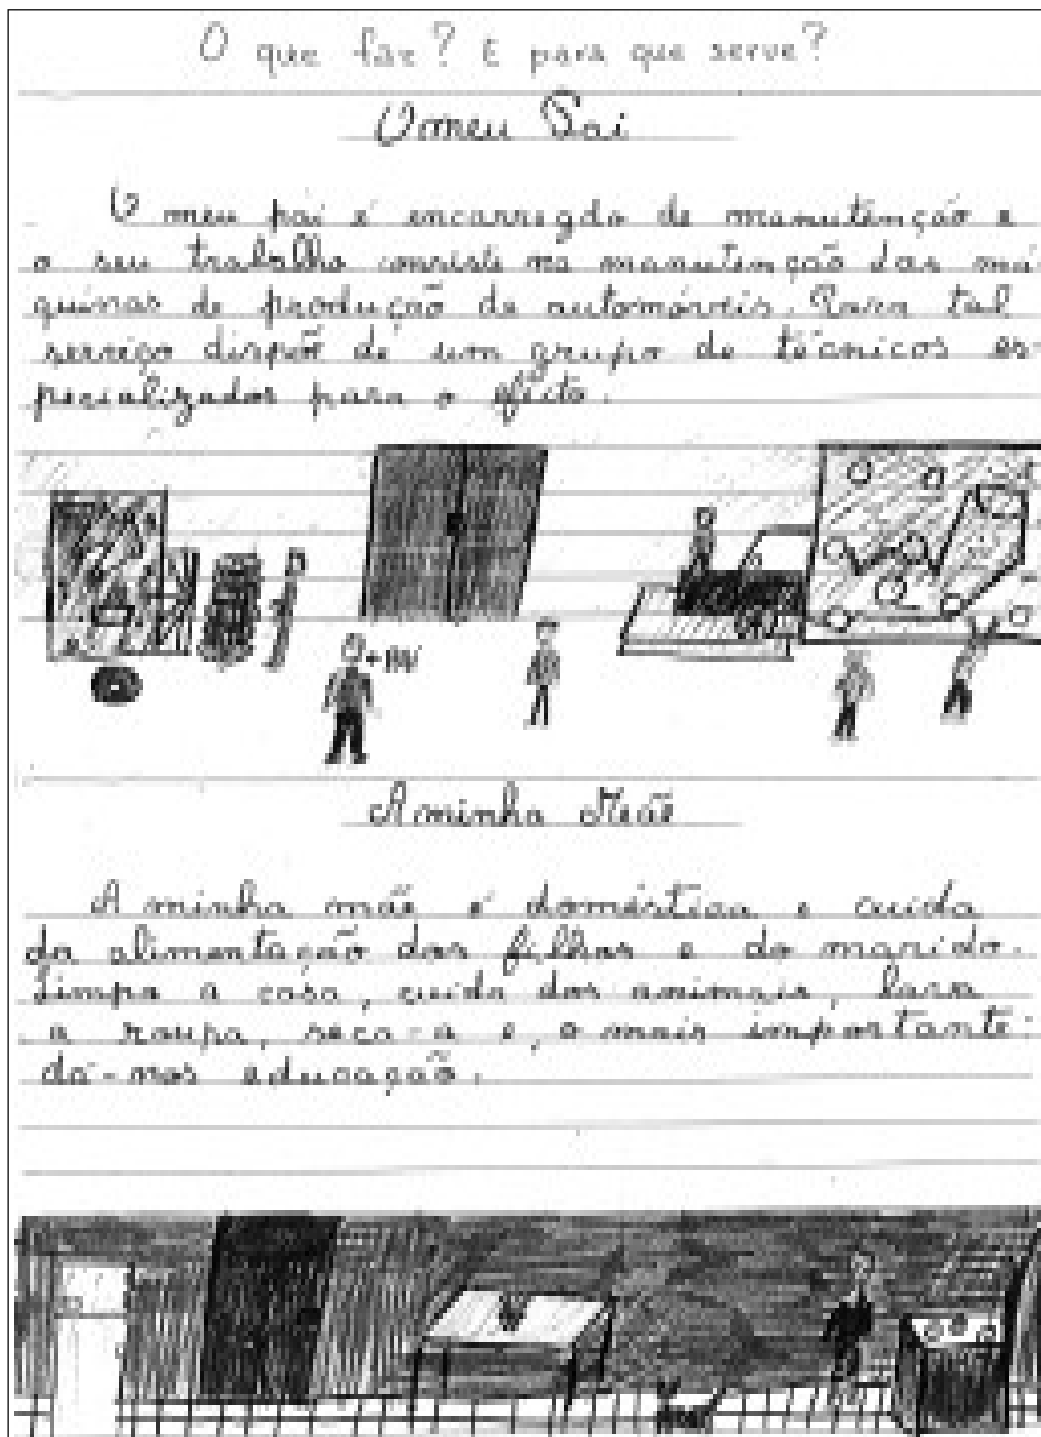 O que faz? E para que serve?
O meu Pai
O meu pai é encarregdo de manutenção e
o seu trabalho consiste na manutenção das má-
quinas de produção de automóveis. Para tal
serviço dispõe de um grupo de técnicos es-
pecializados para o efeito.
A minha Mãe
A minha mãe é doméstica e cuida
da alimentação dos filhos e do marido.
Limpa a casa, cuida dos animais, lava
a roupa, seca-a e, o mais importante:
dá-nos educação.